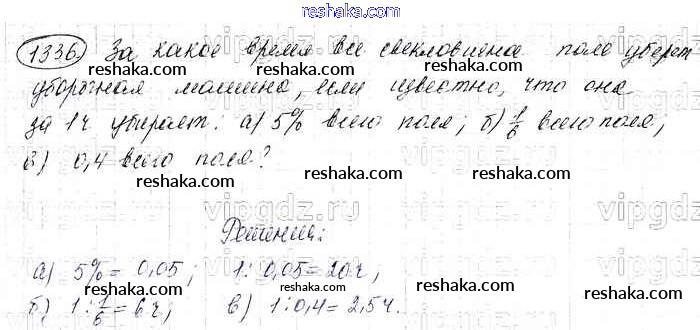 www.reshaka.com
1336. За какое время все свекловичное поле уберет
уборочная машина, если известно, что она
за 1 ч убирает: а) 5% всего поля; б) 1/6 всего поля;
в) 0,4 всего поля?
Решение:
а) 5% = 0,05; 1 : 0,05 = 20 ч;
б) 1 : 1/6 = 6 ч; в) 1 : 0,4 = 2,5 ч.
reshaka.com
reshaka.com
reshaka.com
reshaka.com
reshaka.com
reshaka.com
reshaka.com
reshaka.com
vipgdz.ru
vipgdz.ru
vipgdz.ru
vipgdz.ru